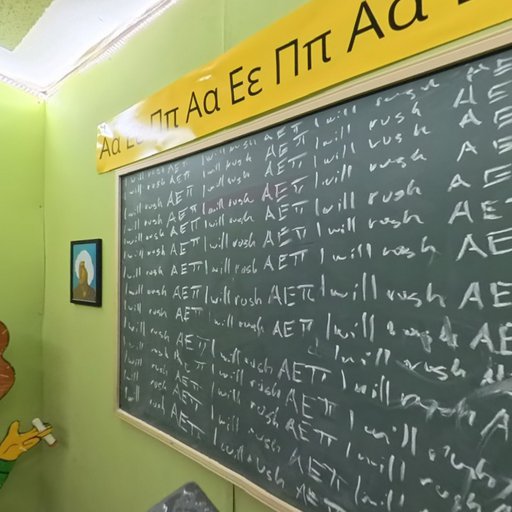 Αα Εε Ππ Αα Εε Ππ Αα
I will rush AEπ I will rush AEπ I will rush AE
I will rush AEπ I will rush AEπ I will rush AE
I will rush AEπ I will rush AEπ I will rush AE
I will rush AEπ I will rush AEπ I will rush AE
I will rush AEπ I will rush AEπ I will rush AE
I will rush AEπ I will rush AEπ I will rush AE
I will rush AEπ I will rush AEπ I will rush AE
I will rush AEπ I will rush AEπ I will rush AE
I will rush AEπ I will rush AEπ I will rush AE
I will rush AEπ I will rush AEπ I will rush
I will rush AEπ I will rush AEπ I will rush
I will rush AEπ I will rush AEπ I will
I will rush AEπ I will rush AEπ I will